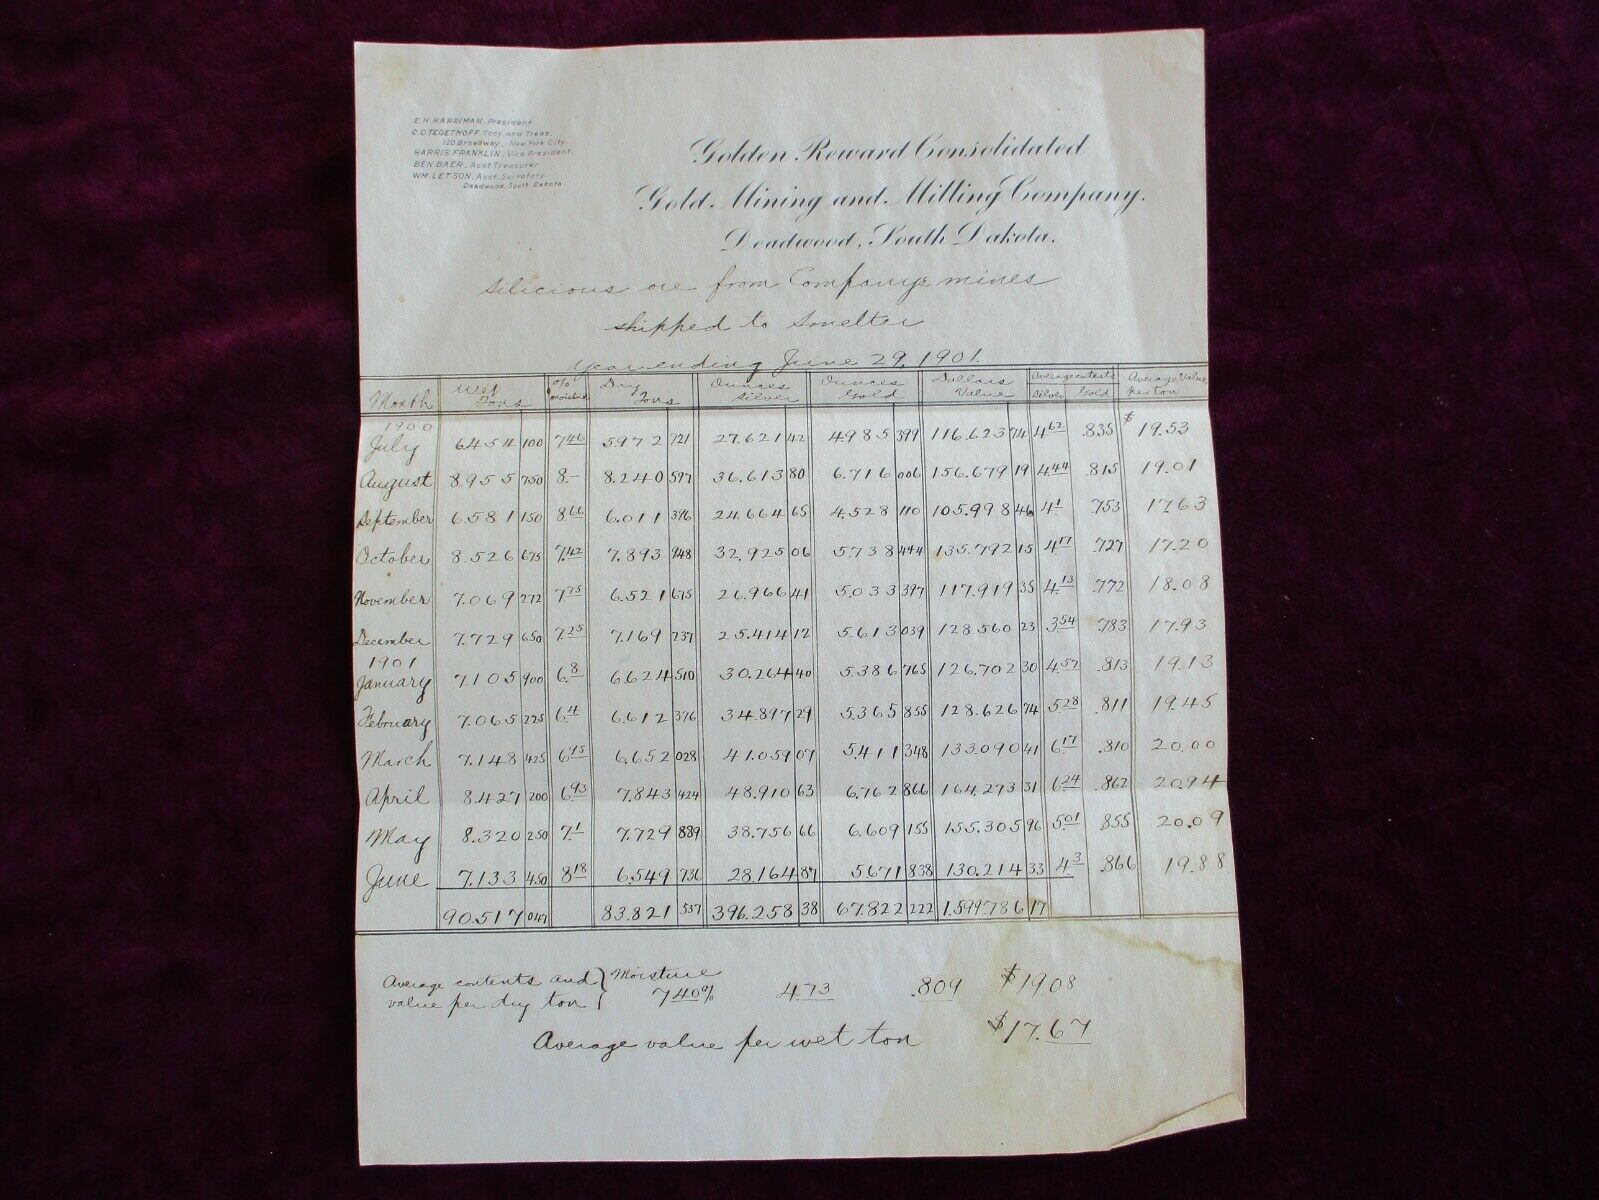 E.H. HARRIMAN, President
C.C. TEGETHOFF, Secy. and Treas.
120 Broadway, New York City
HARRIS FRANKLIN, Vice President
BEN BAER, Asst. Treasurer
WM. LETSON, Asst. Secretary
Deadwood, South Dakota
Golden Reward Consolidated
Gold Mining and Milling Company.
Deadwood, South Dakota.
Silicious ore from Company's mines
shipped to Smelter
Year ending June 29, 1901.
Month Wet Tons % moisture Dry Tons Ounces Silver Ounces Gold Dollars Value Average contents Silver Gold Average Value per ton
1900
July 6.454 100 7.46 5972 721 27.621 42 4985 399 116.623 74 4.62 .835 $19.53
August 8.955 750 8.- 8.240 597 36.613 80 6.716 006 156.679 19 4.44 .815 19.01
September 6.581 150 8.66 6.011 396 24.664 65 4.528 110 105.998 46 4.1 .753 17.63
October 8.526 675 7.42 7.893 948 32.925 06 5.738 444 135.792 15 4.17 .727 17.20
November 7.069 272 7.75 6.521 675 26.966 41 5.033 397 117.919 35 4.13 .772 18.08
December 7.729 650 7.25 7.169 237 25.414 12 5.613 039 128.560 23 3.54 .783 17.93
1901
January 7.105 900 6.8 6.624 510 30.264 40 5.386 765 126.702 30 4.57 .813 19.13
February 7.065 225 6.4 6.612 376 34.897 29 5.365 855 128.626 74 5.28 .811 19.45
March 7.148 425 6.95 6.652 028 41.059 07 5.411 348 133.090 41 6.17 .810 20.00
April 8.427 200 6.93 7.843 424 48.910 63 6.762 866 164.273 31 6.24 .862 20.94
May 8.320 250 7.1 7.729 889 38.756 66 6.609 155 155.305 96 5.01 .855 20.09
June 7.133 450 8.18 6.549 736 28.164 87 5671 838 130.214 33 4.3 .866 19.88
90.517 047 83.821 537 396.258 38 67.822 222 1.599786 17
Average contents and value per dry ton } Moisture 7.40% 4.73 .809 $19.08
Average value per wet ton $17.67